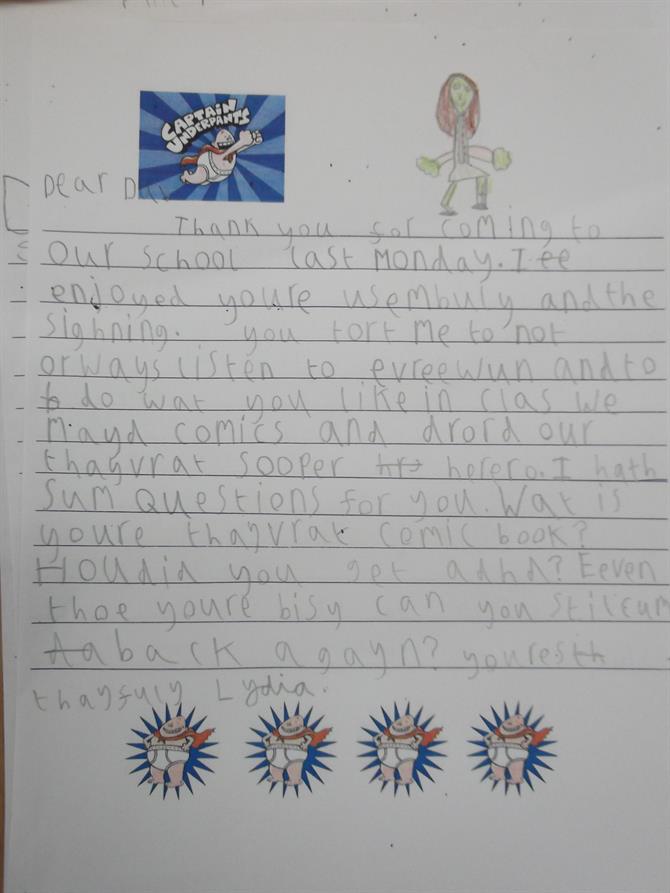 CAPTAIN
UNDERPANTS
Dear
Thank you for coming to
Our school last Monday. I ee
enjoyed youre usembuly and the
sighning. you tort me to not
orways listen to evreewun and to
b do wat you like in clas we
mayd comics and drord our
thagvrat sooper hrs herero. I hath
sum questions for you. Wat is
youre thagvrat comic book?
Houdid you get adhd? Eeven
thoe youre bisy can you stilcum
taback agayn? youresth
thayfuly Lydia.